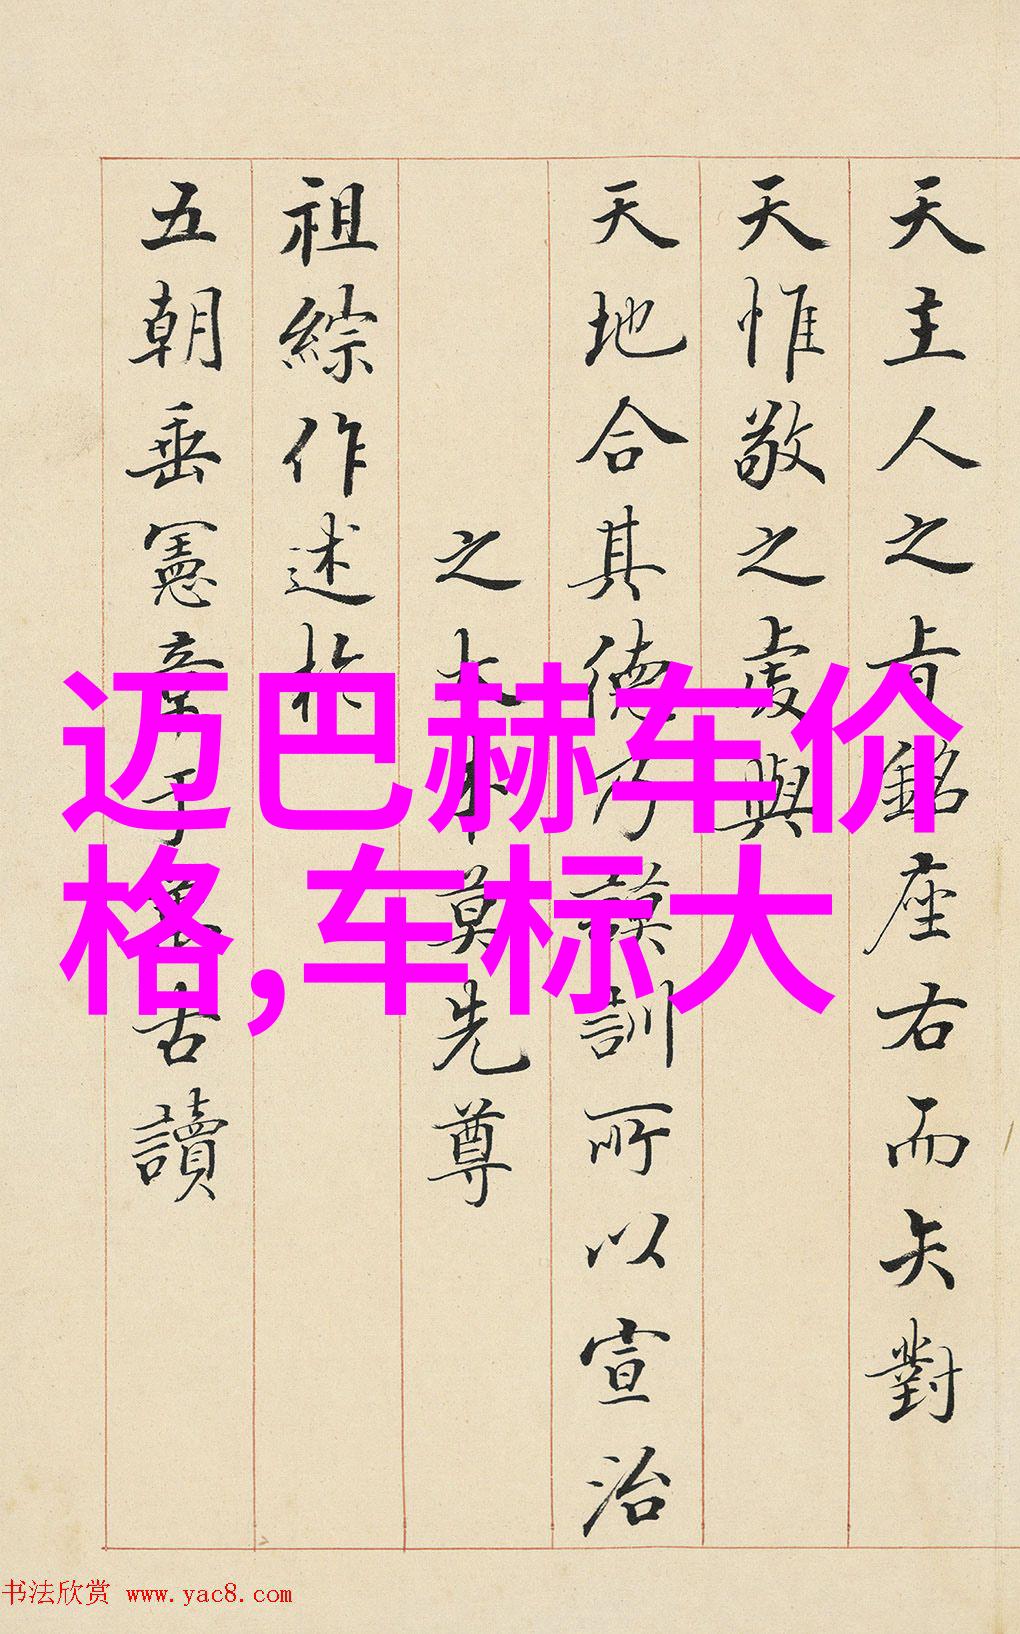 天主人之肯銘座右而矢對
天惟敬之處與
天地合其德乃謨訓所以宣治
之大本莫先尊
祖綜作述於
五朝垂憲章于古讀
迈巴赫车价
格,车标大
书法欣赏 www.yac8.com